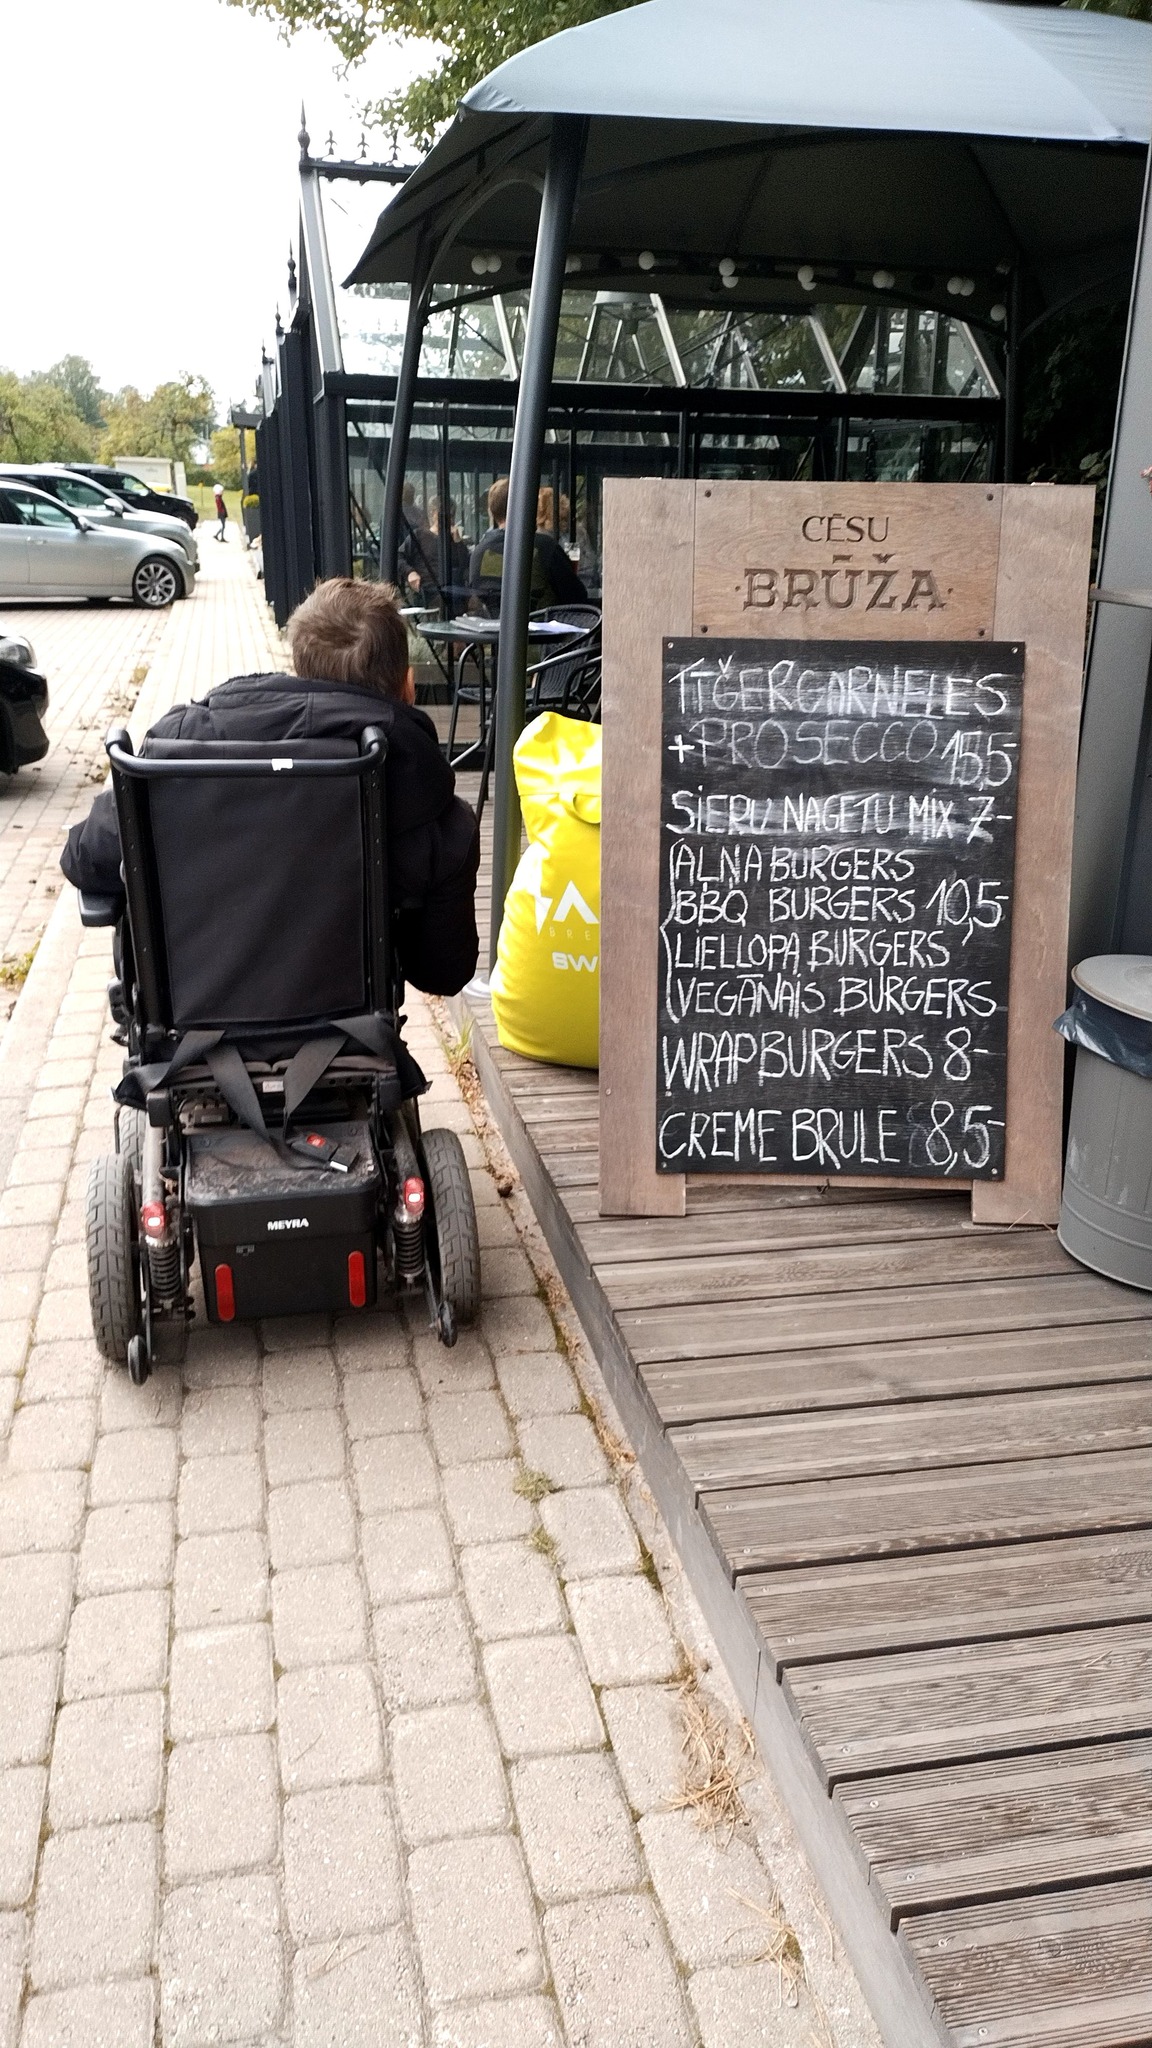 CĒSU
BRŪŽA
TĪĢERGARNELES
+PROSECCO 15,5-
SIERU NAGETU MIX 7-
AĻŅA BURGERS
BBQ BURGERS 10,5-
LIELLOPA BURGERS
VEGĀNAIS BURGERS
WRAP BURGERS 8-
CREME BRULE 8,5-
BRE
SW
MEYRA